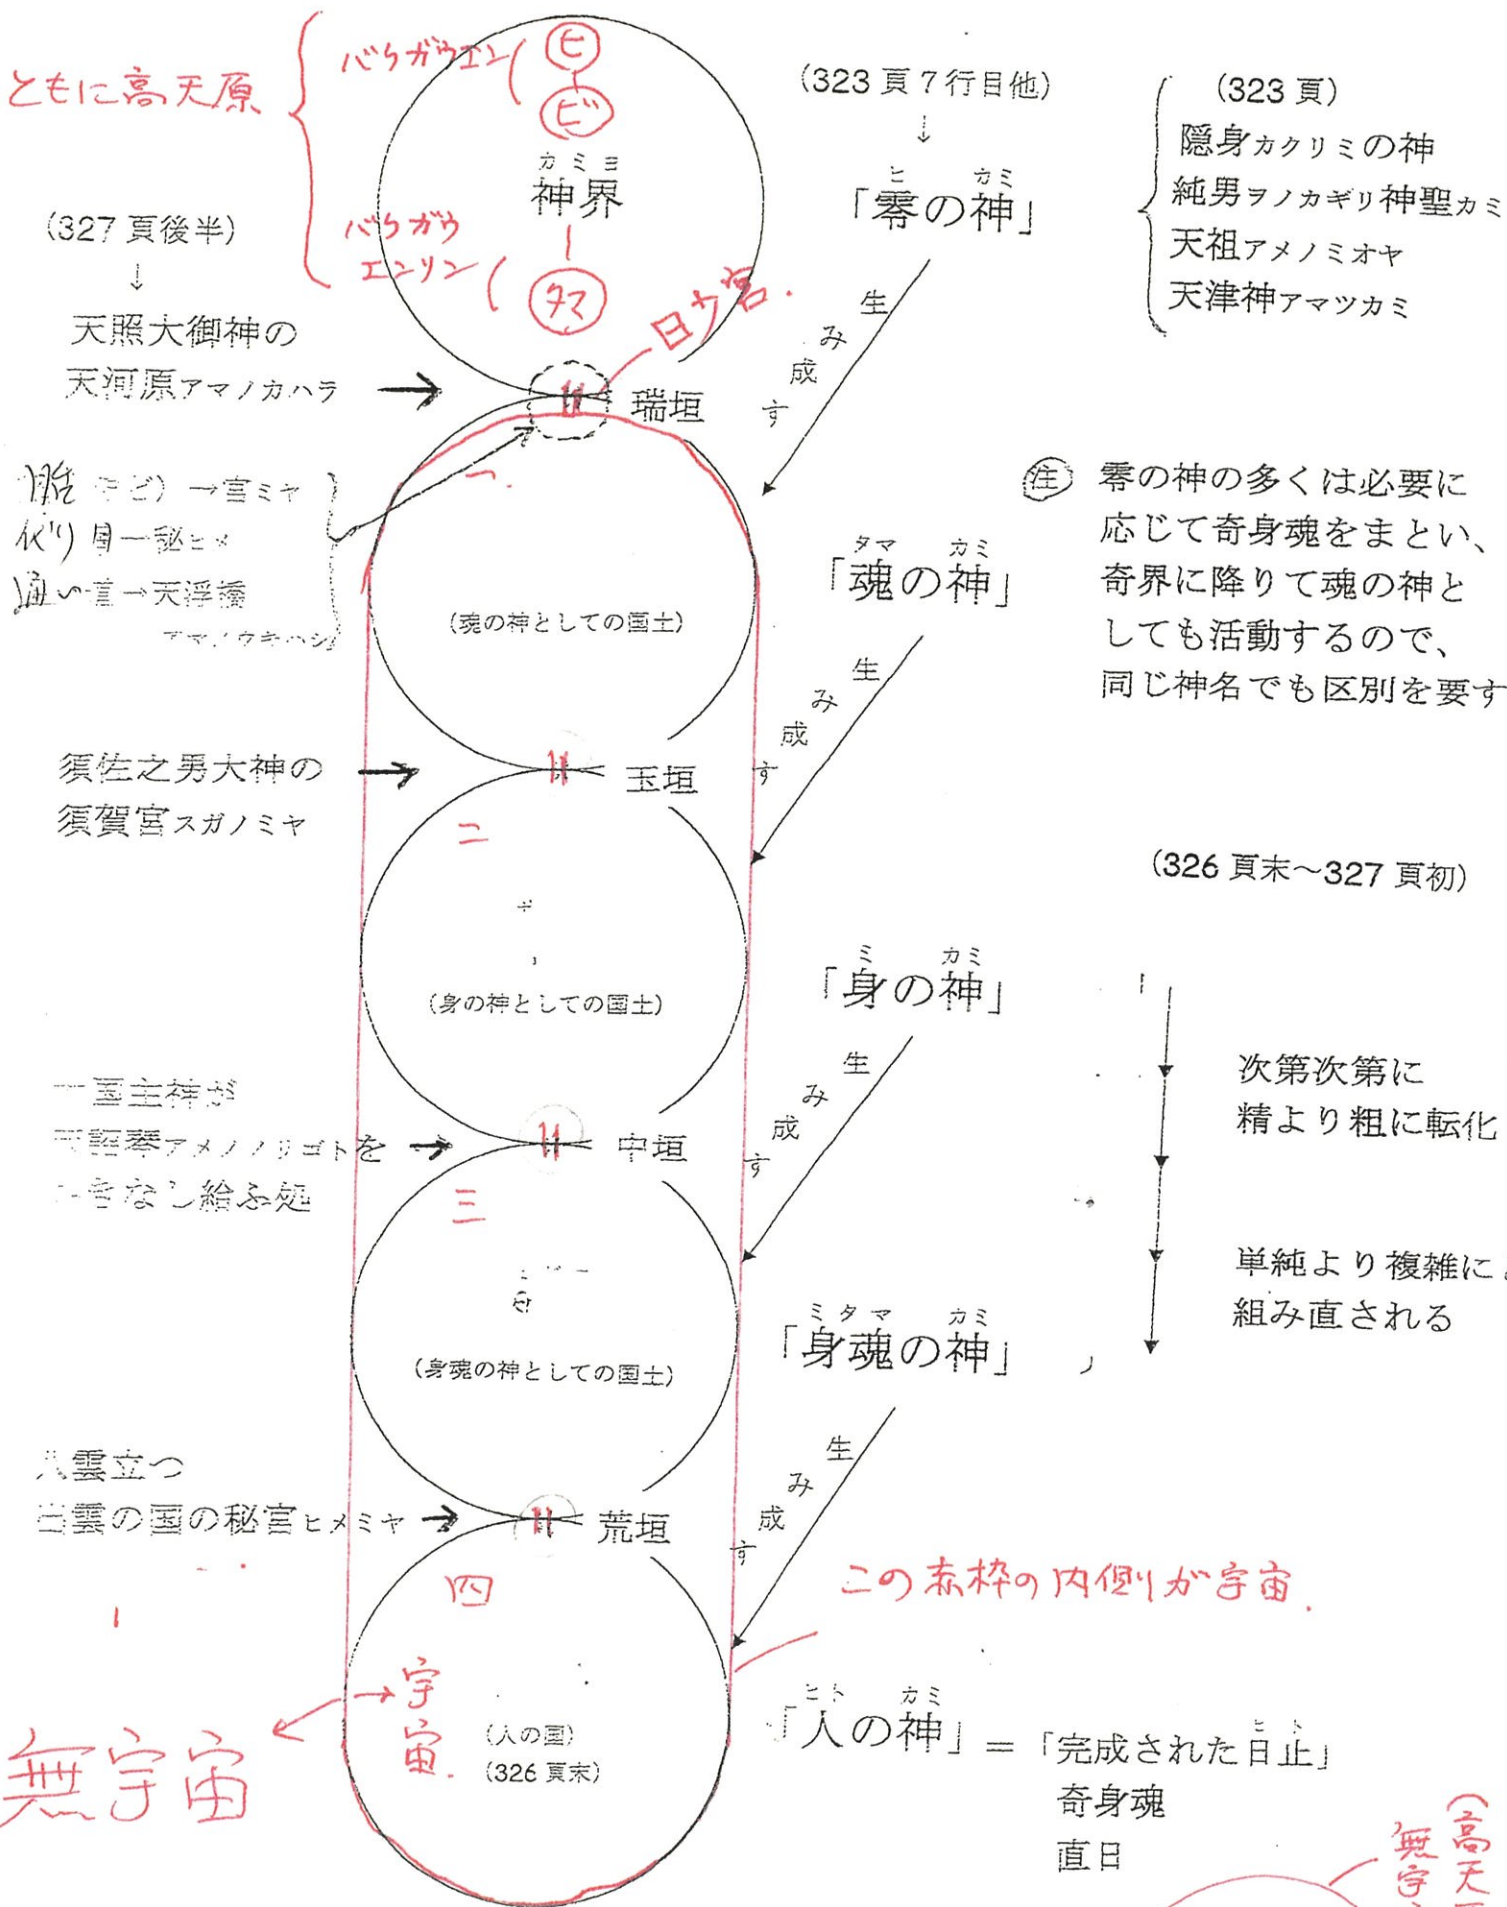 ともに高天原
バウガウエン
ヒ
ビ
カミヨ
神界
バウガウ
エンリン
タマ
日少宮.
(327 頁後半)
↓
天照大御神の
天河原アマノカハラ
瑞垣
→宮ミヤ
→天浮橋
一.
(魂の神としての国土)
須佐之男大神の
須賀宮スガノミヤ
玉垣
二
(身の神としての国土)
国主神が
アメノノリゴトを
きなし給ふ処
中垣
三
(身魂の神としての国土)
八雲立つ
出雲の国の秘宮ヒメミヤ
荒垣
四
無宇宙
宇宙.
(人の国)
(326 頁末)
(323 頁 7 行目他)
↓
ヒ カミ
「零の神」
生み成す
タマ カミ
「魂の神」
生み成す
ミ カミ
「身の神」
生み成す
ミタマ カミ
「身魂の神」
生み成す
この赤枠の内側が宇宙.
ヒト カミ
「人の神」=「完成された日止」
ヒト
奇身魂
直日
(323 頁)
隠身カクリミの神
純男ヲノカギリ神聖カミ
天祖アメノミオヤ
天津神アマツカミ
注 零の神の多くは必要に
応じて奇身魂をまとい、
奇界に降りて魂の神と
しても活動するので、
同じ神名でも区別を要す
(326 頁末~327 頁初)
次第次第に
精より粗に転化
単純より複雑に
組み直される
(高天
無宇